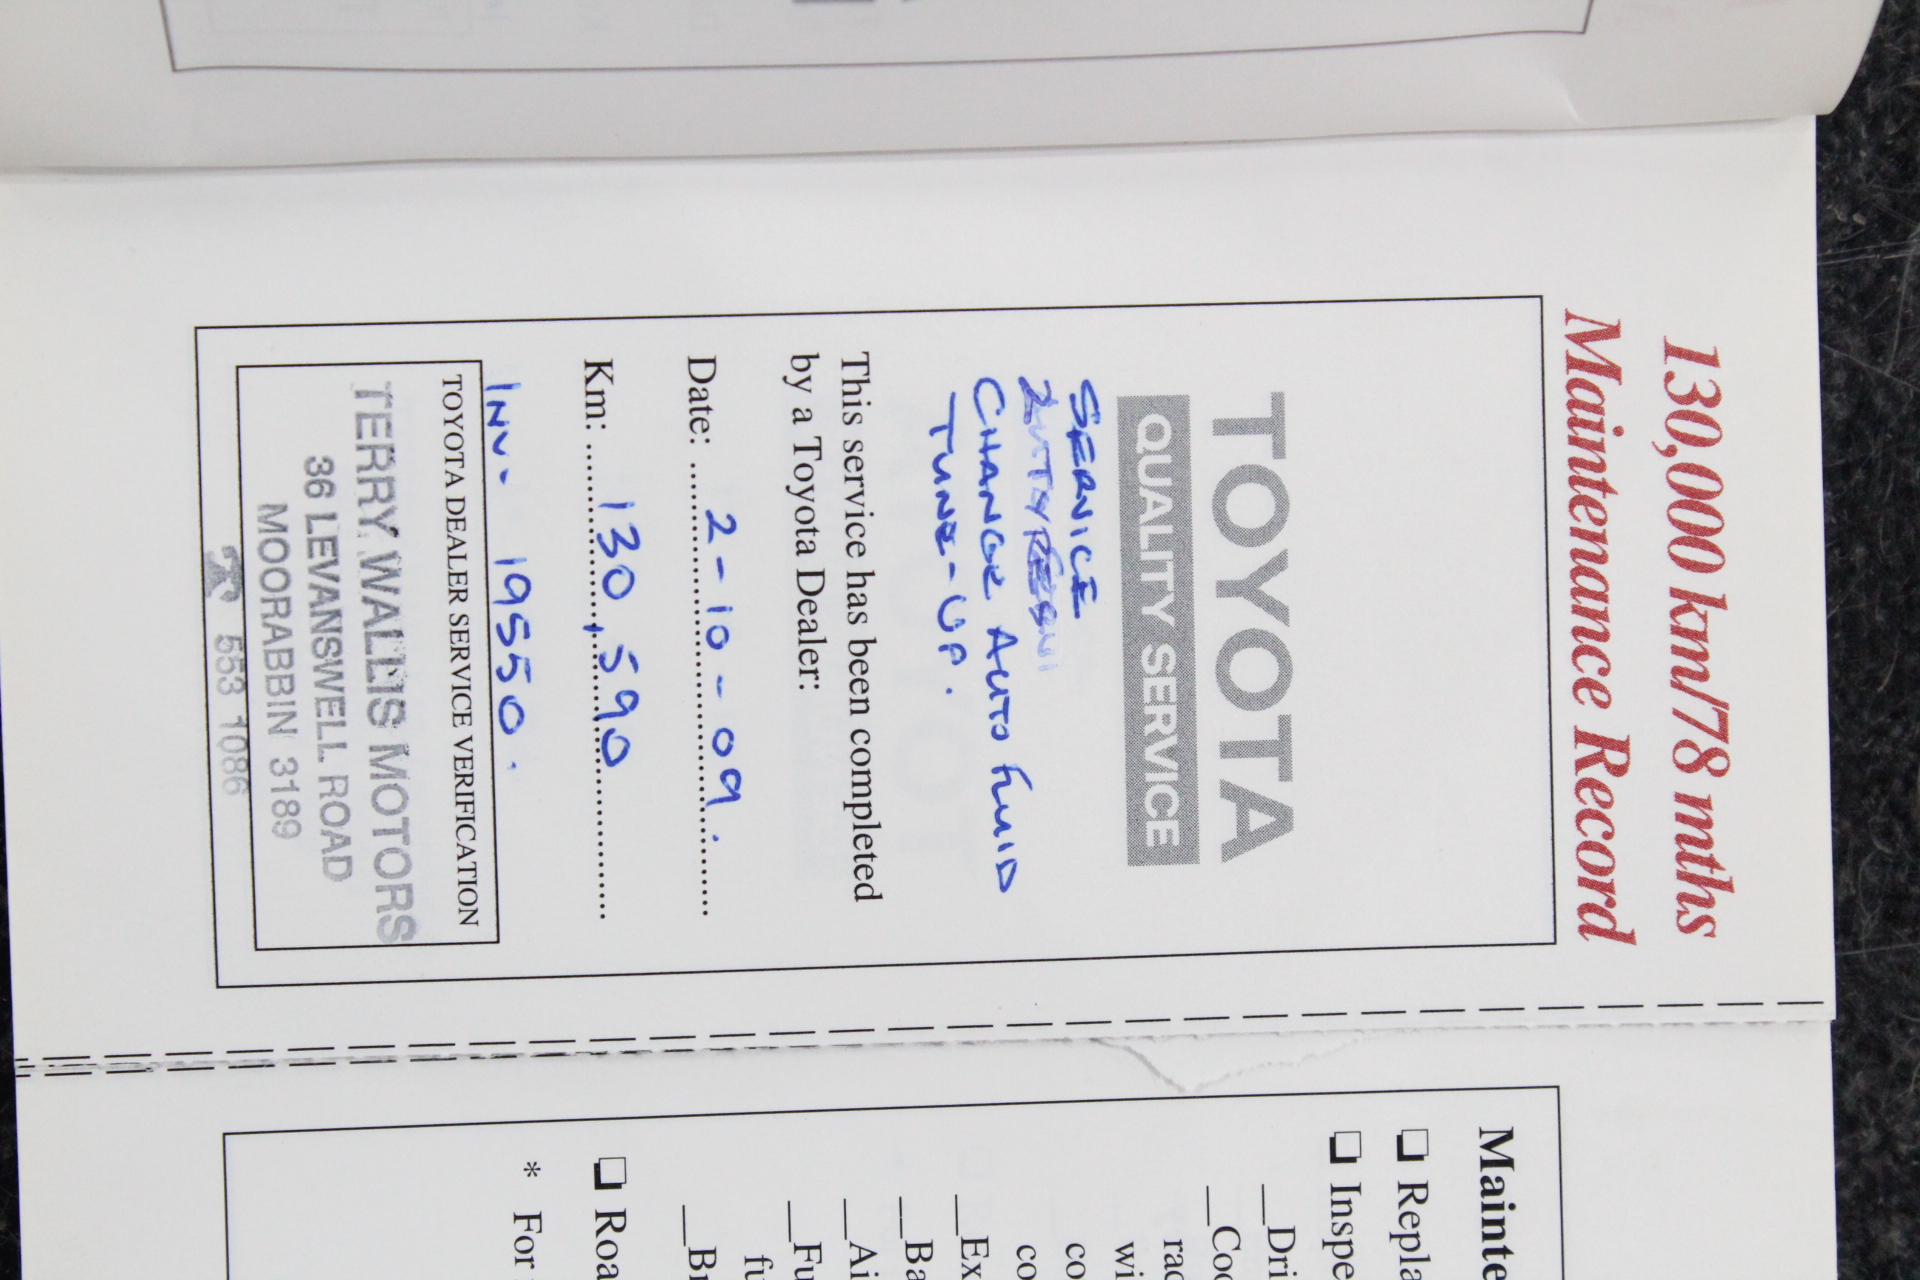 130,000 km/78 mths
Maintenance Record
TOYOTA
QUALITY SERVICE
SERVICE
CHANGE AUTO FLUID
TUNE-UP.
This service has been completed
by a Toyota Dealer:
Date: 2-10-09.
Km: 130,590
INV- 19550.
TOYOTA DEALER SERVICE VERIFICATION
TERRY WALLIS MOTORS
36 LEVANSWELL ROAD
MOORABBIN 3189
553 1086
Mainte
Repla
Inspe
Dri
Coo
rad
wi
co
co
Ex
Ba
Ai
Fu
fu
Br
Roa
* For